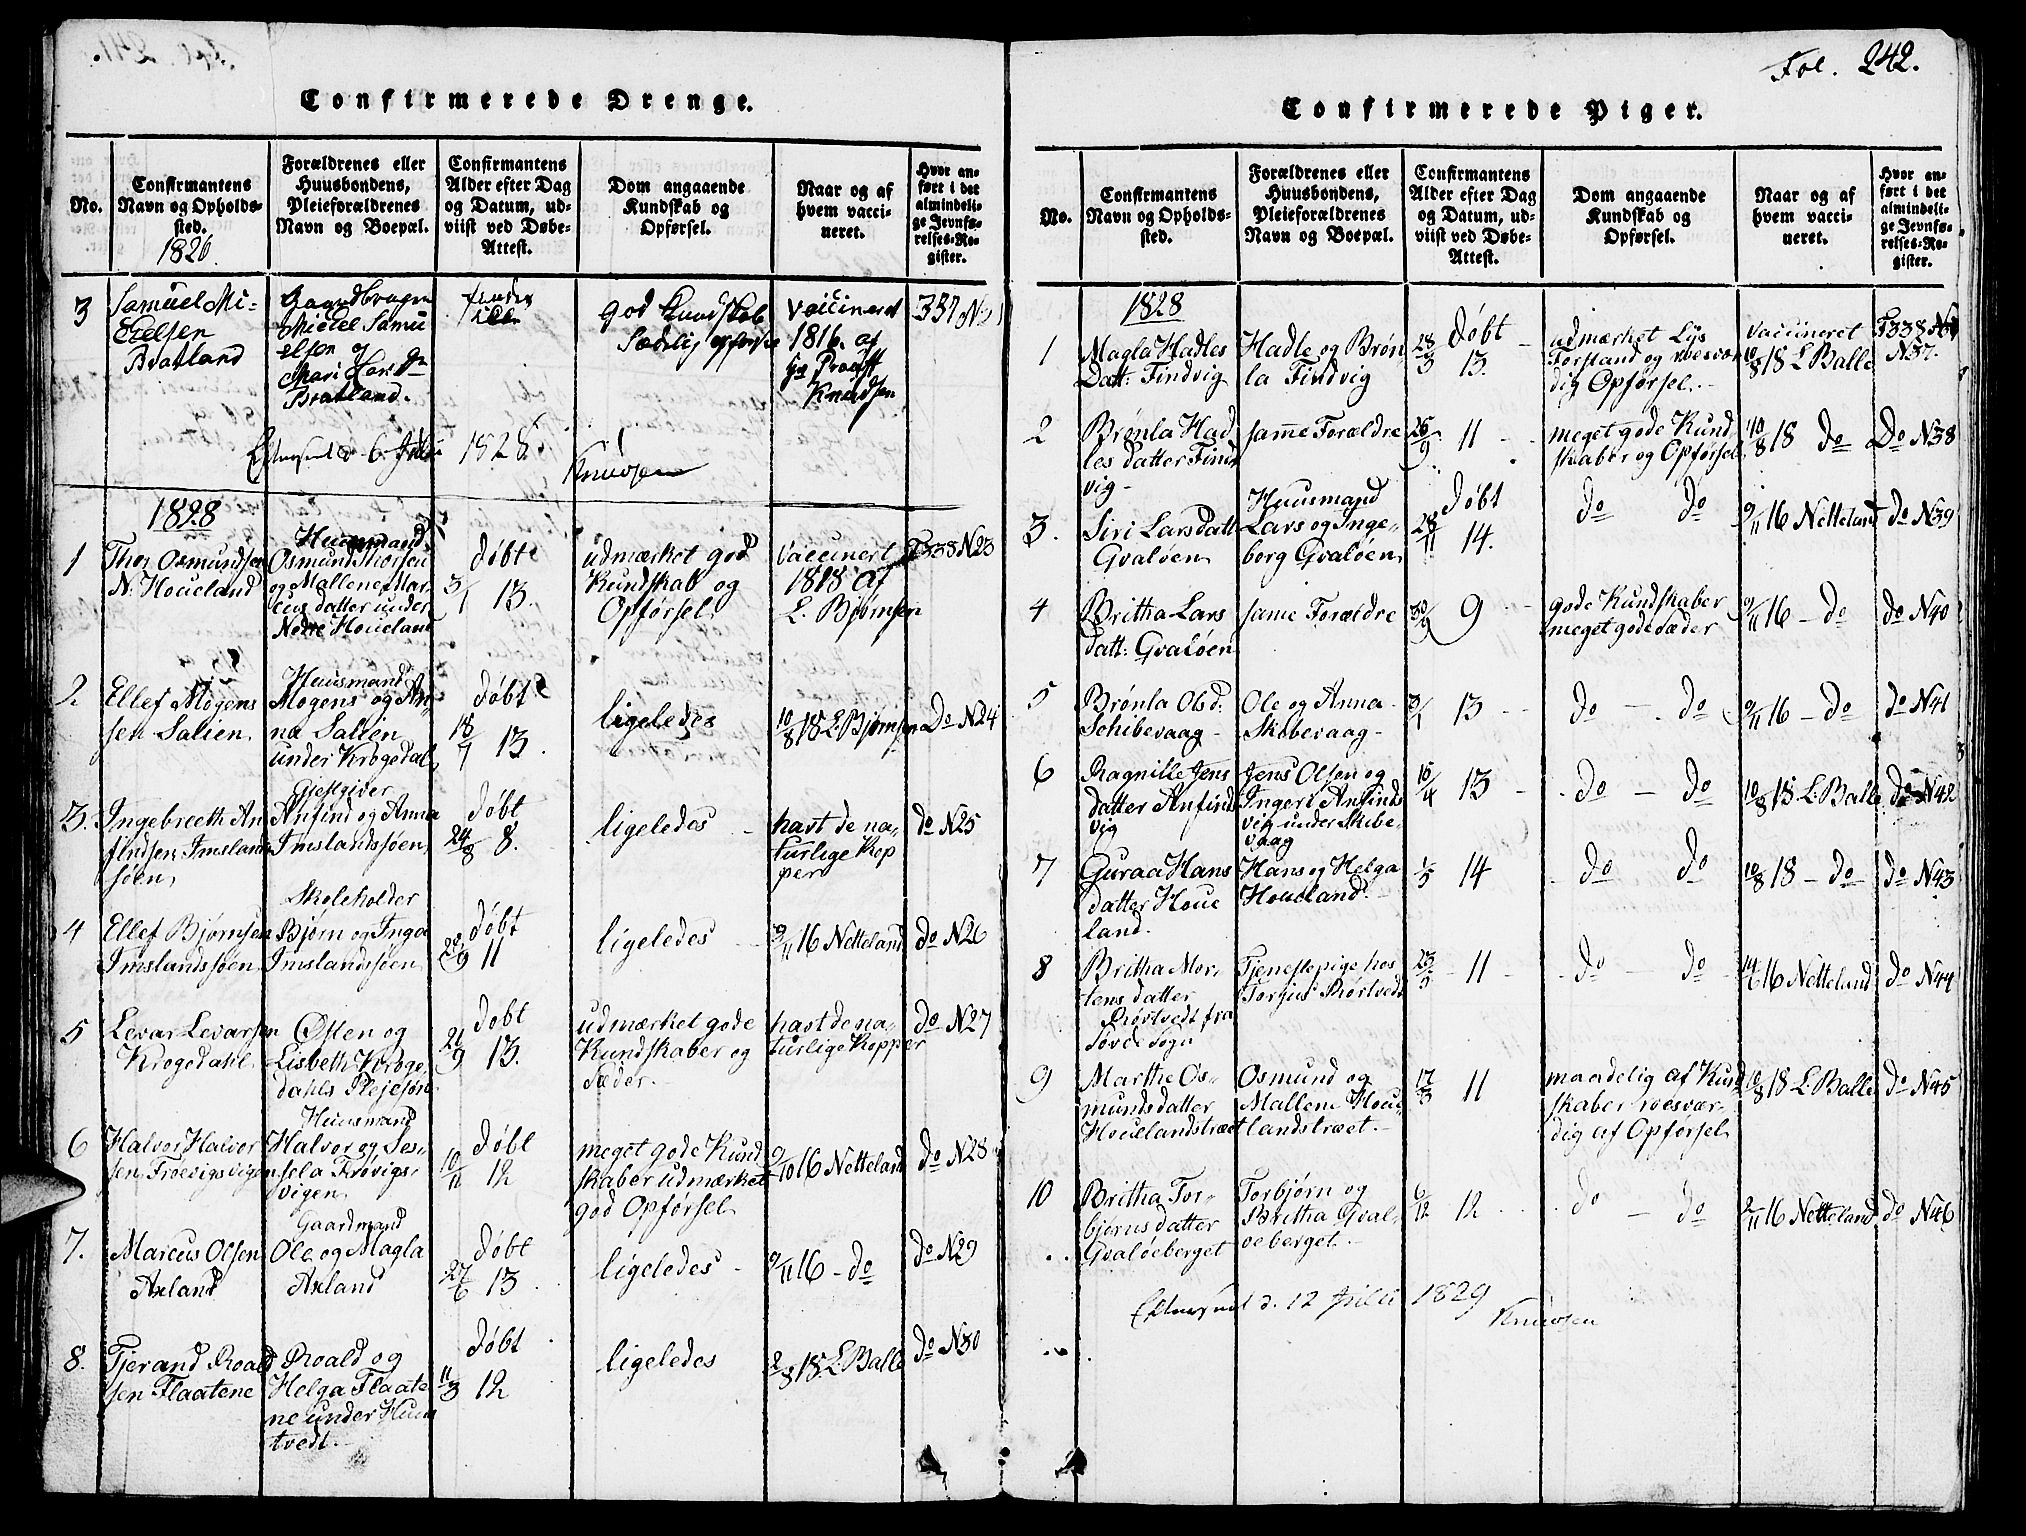 Fol. 242.
Confirmerede Drenge.
No.
Confirmantens
Navn og Opholds-
sted.
1826.
Forældrenes eller
Huusbondens,
Pleieforældrenes
Navn og Boepæl.
Confirmantens
Alder efter Dag
og Datum, ud-
viist ved Døbe-
Attest.
Dom angaaende
Kundskab og
Opførsel.
Naar og af
hvem vacci-
neret.
Hvor an-
ført i det
almindeli-
ge Jevnfø-
relses-Re-
gister.
3
Samuel Mi-
Bratland
Michel Samu
elsen og
Bratland.
god Kundskab
Sædelig opførsel
Vaccineret
1816. af
Hr Provst
Knudsen
337 N
1828.
Knudsen
1828
1
Thor Osmundsen
N. Houeland
Huusmand
Osmund Thorsen
og Mallene Mar-
cus datter under
Nedre Houeland
døbt
3/1 13.
udmærket god
Kundskab og
Opførsel
Vaccinert
1818 af
L. Bjørnsen
F338 N23
2
Ellef Mogens
sen Salien
Huusmand
Mogens og An-
na Salien
under Krogedal
døbt
18/7 13.
ligeledes
10/8 18 L. Bjørnsen
Do N24
3.
Ingebreeth An
findsen Imslands
søen
Gjestgiver
Anfind og Anna
Imslandssøen
døbt
24/8 8.
ligeledes
havt de na-
turlige Kop
per
do N25
4
Ellef Bjørnsen
Imslandssøen
Skoleholder
Bjørn og Inga
Imslandssøen
døbt
28/9 11
ligeledes
9/11 16 Netteland
do N26
5
Levar Levarsen
Krogedahl
Østen og
Lisbeth Kroge-
dahls Plejesøn
døbt
21/9 13.
udmærket gode
Kundskaber og
Sæder.
havt de na-
turlige Kopper
do N27
6
Halvor Halvor
sen Frøevigsvigen
Huusmand
Halvor og Ses-
sela Frøvigs-
vigen
døbt
10/11 12
meget gode Kund
skaber udmærket
god Opførsel
9/10 16 Netteland
do N28
7.
Marcus Olsen
Axland
Gaardmand
Ole og Magla
Axland
døbt
27/6 13
ligeledes
9/11 16 - do
do N29
8.
Tjerand Roald
sen Flaatene
Roald og
Helga Flaate
ne under Huus
tvedt
døbt
11/3 12
ligeledes
2/8 18 L. Balle
do N30
Confirmerede Piger.
No.
Confirmantens
Navn og Opholds-
sted.
Forældrenes eller
Huusbondens,
Pleieforældrenes
Navn og Boepæl.
Confirmantens
Alder efter Dag
og Datum, ud-
viist ved Døbe-
Attest.
Dom angaaende
Kundskab og
Opførsel.
Naar og af
hvem vacci-
neret.
Hvor an-
ført i det
almindeli-
ge Jevnfø-
relses-Re-
gister.
1828
1
Magla Hadles
Datt: Findvig
Hadle og Brøn
la Findvig
døbt
28/3 13.
udmærket Lys
Forstand og roesvær
dig Opførsel.
Vaccineret
10/8 18 L Balle
F338
N37.
2
Brønla Had
les datter Find
vig
samme Forældre
26/9 11
meget gode Kund
skaber og Opførsel
10/8 18 do
Do N38
3.
Siri Larsdatt
Gvaløen
Huusmand
Lars og Inge-
borg Gvaløen
døbt
28/11 14.
do do
9/11 16 Netteland
do N39
4
Britha Lars
datt: Gvaløen
same Forældre
30/9 9
gode Kundskaber
meget gode sæder
9/11 16 - do
do N40
5
Brønla Olsd:
Schibevaag
Ole og Anna
Skibevaag
3/1 13
do - do
9/11 16 - do
do N41
6
Ragnille Jens
datter Anfinds
vig
Jens Olsen og
Ingeri Anfinds
vig under Skibe-
vaag
16/4 13
do - do
10/8 18 L. Balle
do N42
7
Guraa Hans
datter Houe
land.
Hans og Helga
Houeland.
1/5 14
do do
10/8 18 - do
do N43
8
Britha Mor-
tens datter
Rørtvedt fra
Søvde Sogn
Tjenestepige hos
Torjus Rørtvedt
23/3 11
do - do
14/6 16 Netteland
do N44
9
Marthe Os-
munds datter
Houelandstræet
Osmund og
Mallene Houe
landstræet.
17/3 11
maadelig af Kund
skaber roesvær-
dig af Opførsel
10/8 18 L. Balle
do N45
10
Britha Tor-
bjørns datter
Gvaløeberget
Torbjørn og
Britha Gval-
øeberget.
6/12 12
do - do
2/11 16 Netteland
do N46
Efterseet d. 12 Julii 1829
Knudsen